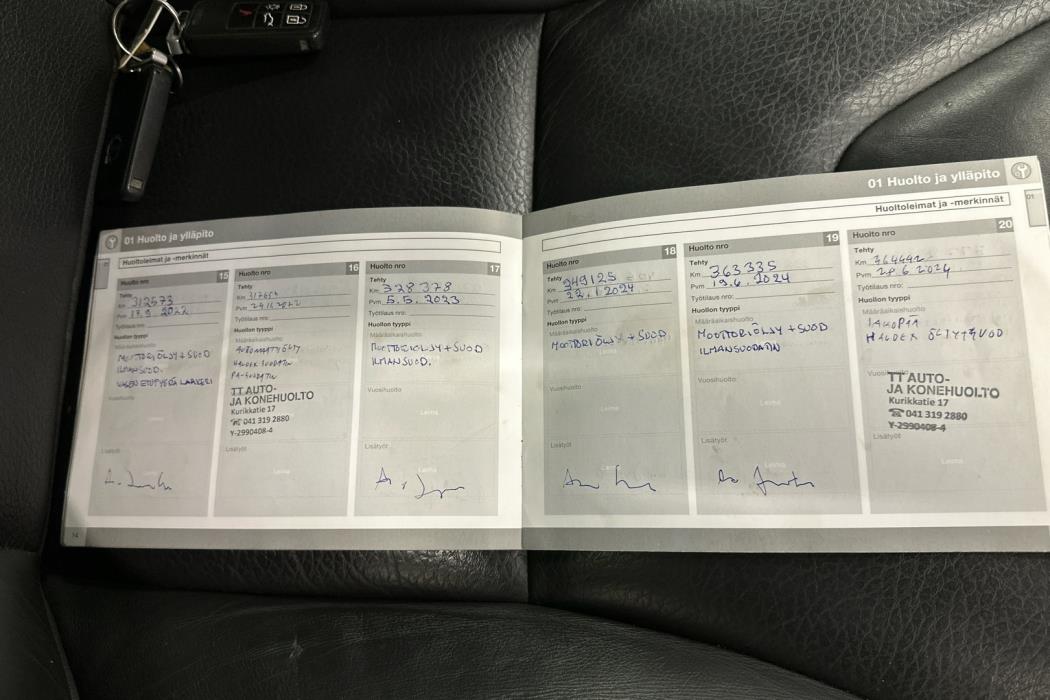 01 Huolto ja ylläpito
Huoltoleimat ja -merkinnät
15
Tehty
Km 312573
Pvm 13.9.2022
Työtilaus nro:
Huollon tyyppi
Määräaikaishuolto
MOOTTORIÖLJY + SUOD
ILMANSUOD.
VASEN ETUPYÖRÄ LAAKERI
Vuosihuolto
Lisätyöt
Huolto nro 16
Tehty
Km
Pvm
Työtilaus nro:
Huollon tyyppi
Määräaikaishuolto
AUTOMAATTIÖLJY
HALDEX SUODATIN
PA-SUODATIN
TT AUTO-
JA KONEHUOLTO
Kurikkatie 17
☎ 041 319 2880
Y-2990408-4
Lisätyöt
Leima
Huolto nro 17
Tehty
Km 328 378
Pvm 5.5.2023
Työtilaus nro:
Huollon tyyppi
Määräaikaishuolto
MOOTTORIÖLJY + SUOD
ILMANSUOD.
Vuosihuolto
Leima
Lisätyöt
14
01 Huolto ja ylläpito
Huoltoleimat ja -merkinnät
01
Huolto nro 18
Tehty
Km 349125
Pvm 22.1.2024
Työtilaus nro:
Huollon tyyppi
Määräaikaishuolto
MOOTTORIÖLJY + SUOD.
Vuosihuolto
Leima
Lisätyöt
Leima
Huolto nro 19
Tehty
Km 363335
Pvm 19.6.2024
Työtilaus nro:
Huollon tyyppi
Määräaikaishuolto
MOOTTORIÖLJY + SUOD
ILMANSUODATIN
Vuosihuolto
Leima
Lisätyöt
Leima
Huolto nro 20
Tehty
Km 364442
Pvm 28.6.2024
Työtilaus nro:
Huollon tyyppi
Määräaikaishuolto
JAKOPÄÄ
HALDEX ÖLJYT+SUOD
Vuosihuolto
TT AUTO-
JA KONEHUOLTO
Kurikkatie 17
☎ 041 319 2880
Y-2990408-4
Lisätyöt
Leima